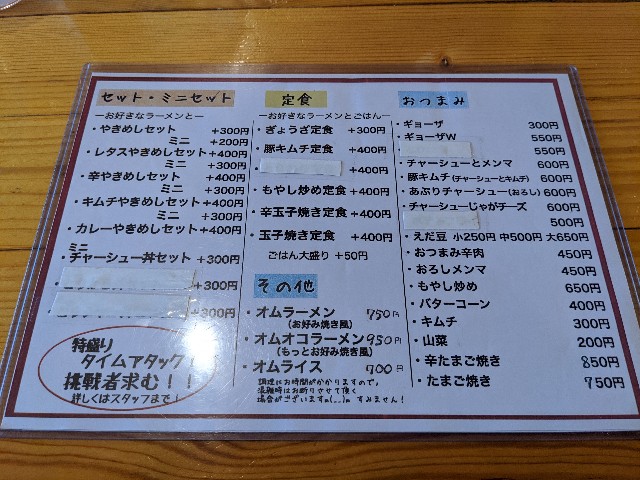 セット・ミニセット
―お好きなラーメンと―
・やきめしセット +300円
ミニ +200円
・レタスやきめしセット +400円
ミニ +300円
・辛やきめしセット +400円
ミニ +300円
・キムチやきめしセット +400円
ミニ +300円
・カレーやきめしセット +400円
ミニ
・チャーシュー丼セット +300円
+300円
+300円
特盛り
タイムアタック!
挑戦者求む!!
詳しくはスタッフまで!
定食
―お好きなラーメンとごはん―
・ぎょうざ定食 +300円
・豚キムチ定食 +400円
+400円
・もやし炒め定食 +400円
・辛玉子焼き定食 +400円
・玉子焼き定食 +400円
ごはん大盛り +50円
その他
・オムラーメン 750円
(お好み焼き風)
・オムオコラーメン 950円
(もっとお好み焼き風)
・オムライス 900円
調理にお時間がかかりますので、
混雑時はお断りさせて頂く
場合がございますm(__)m すみません!
おつまみ
・ギョーザ 300円
・ギョーザW 550円
550円
・チャーシューとメンマ 600円
・豚キムチ(チャーシューとキムチ) 600円
・あぶりチャーシュー(おろし) 600円
・チャーシューじゃがチーズ 600円
500円
・えだ豆 小250円 中500円 大650円
・おつまみ辛肉 450円
・おろしメンマ 450円
・もやし炒め 650円
・バターコーン 400円
・キムチ 300円
・山菜 200円
・辛たまご焼き 850円
・たまご焼き 750円